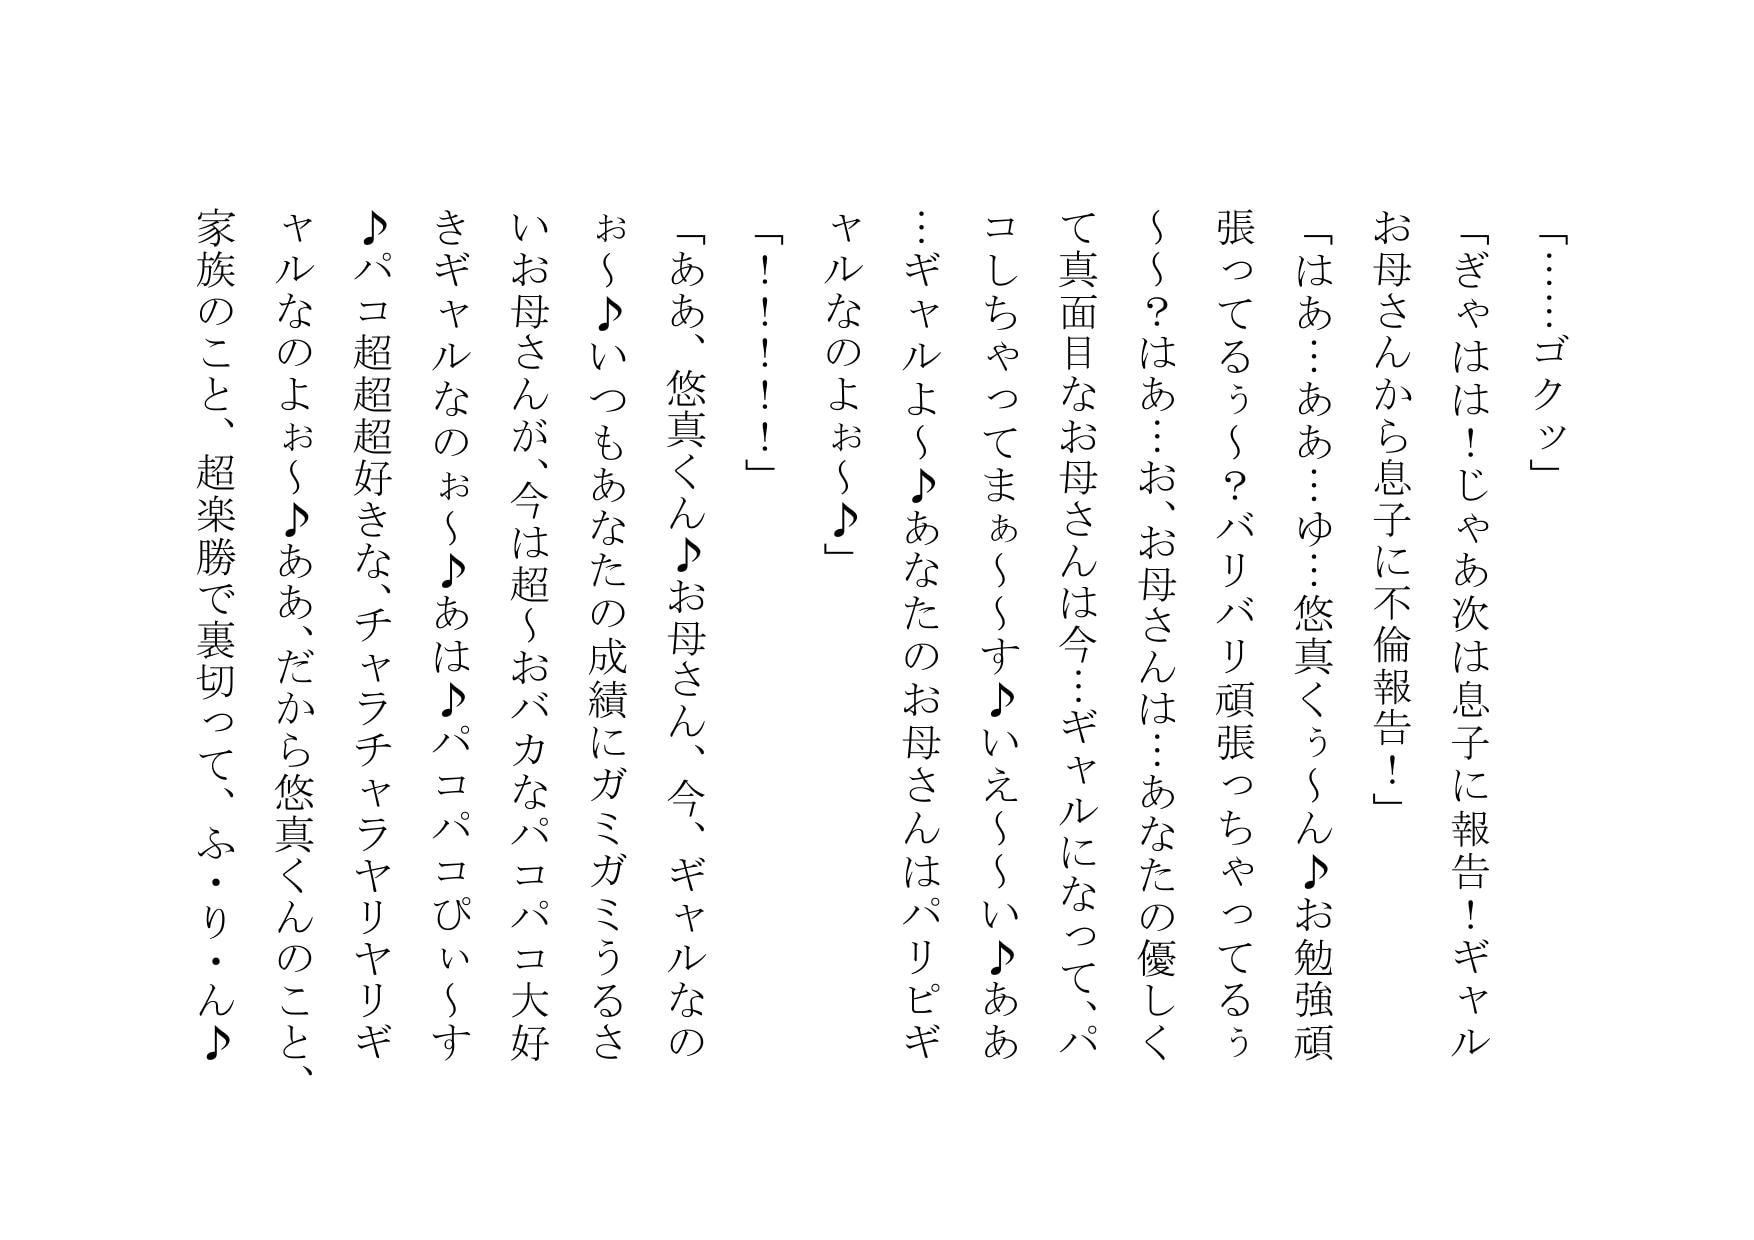 「……ゴクッ」
「ぎゃはは！じゃあ次は息子に報告！ギャル
お母さんから息子に不倫報告！」
「はあ…ああ…ゆ…悠真くぅ～ん♪お勉強頑
張ってるぅ～？バリバリ頑張っちゃってるぅ
～～？はあ…お、お母さんは…あなたの優しく
て真面目なお母さんは今…ギャルになって、パ
コしちゃってまぁ～～す♪いえ～～い♪ああ
…ギャルよ～♪あなたのお母さんはパリピギ
ャルなのよぉ～♪」
「！！！！！」
「ああ、悠真くん♪お母さん、今、ギャルなの
ぉ～♪いつもあなたの成績にガミガミうるさ
いお母さんが、今は超～おバカなパコパコ大好
きギャルなのぉ～♪あは♪パコパコぴぃ～す
♪パコ超超超好きな、チャラチャラヤリヤリギ
ャルなのよぉ～♪ああ、だから悠真くんのこと、
家族のこと、超楽勝で裏切って、ふ・り・ん♪